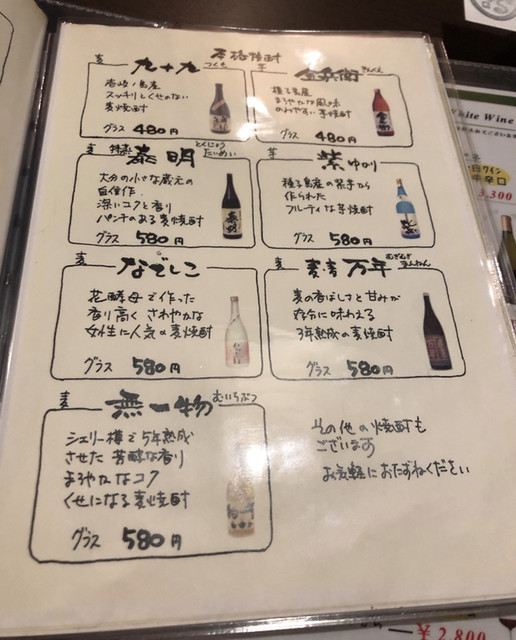 本格焼酎
麦 九十九 つくも
壱岐ノ島産
スッキリとくせのない
麦焼酎
グラス 480円
芋 金兵衛 きんべえ
種子島産
まろやかな風味
のみやすい芋焼酎
グラス 480円
麦 特蒸 泰明 とくじょう たいめい
大分の小さな蔵元の
自信作。
深いコクと香り
パンチのある麦焼酎
グラス 580円
芋 紫ゆり
種子島産の紫芋から
作られた
フルーティな芋焼酎
グラス 580円
麦 なでしこ
花酵母で作った
香り高く さわやかな
女性に人気の麦焼酎
グラス 580円
麦 麦麦万年 むぎむぎ まんねん
麦の香ばしさと甘みが
存分に味わえる
3年熟成の麦焼酎
グラス 580円
麦 無一物 むいちぶつ
シェリー樽で5年熟成
させた 芳醇な香り
まろやかなコク
くせになる麦焼酎
グラス 580円
その他の焼酎も
ございます
お気軽におたずねください
White Wine
白ワイン
中辛口
3,300
¥2,800